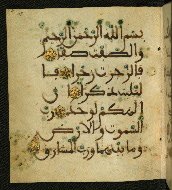 بسم الله الرحمن الرحيم
والصفت صفا
فالزجرت زجرا فا
لتليت ذكرا ان
الهكم لوحد رب
السموت والارض
وما بينهما ورب المشرق